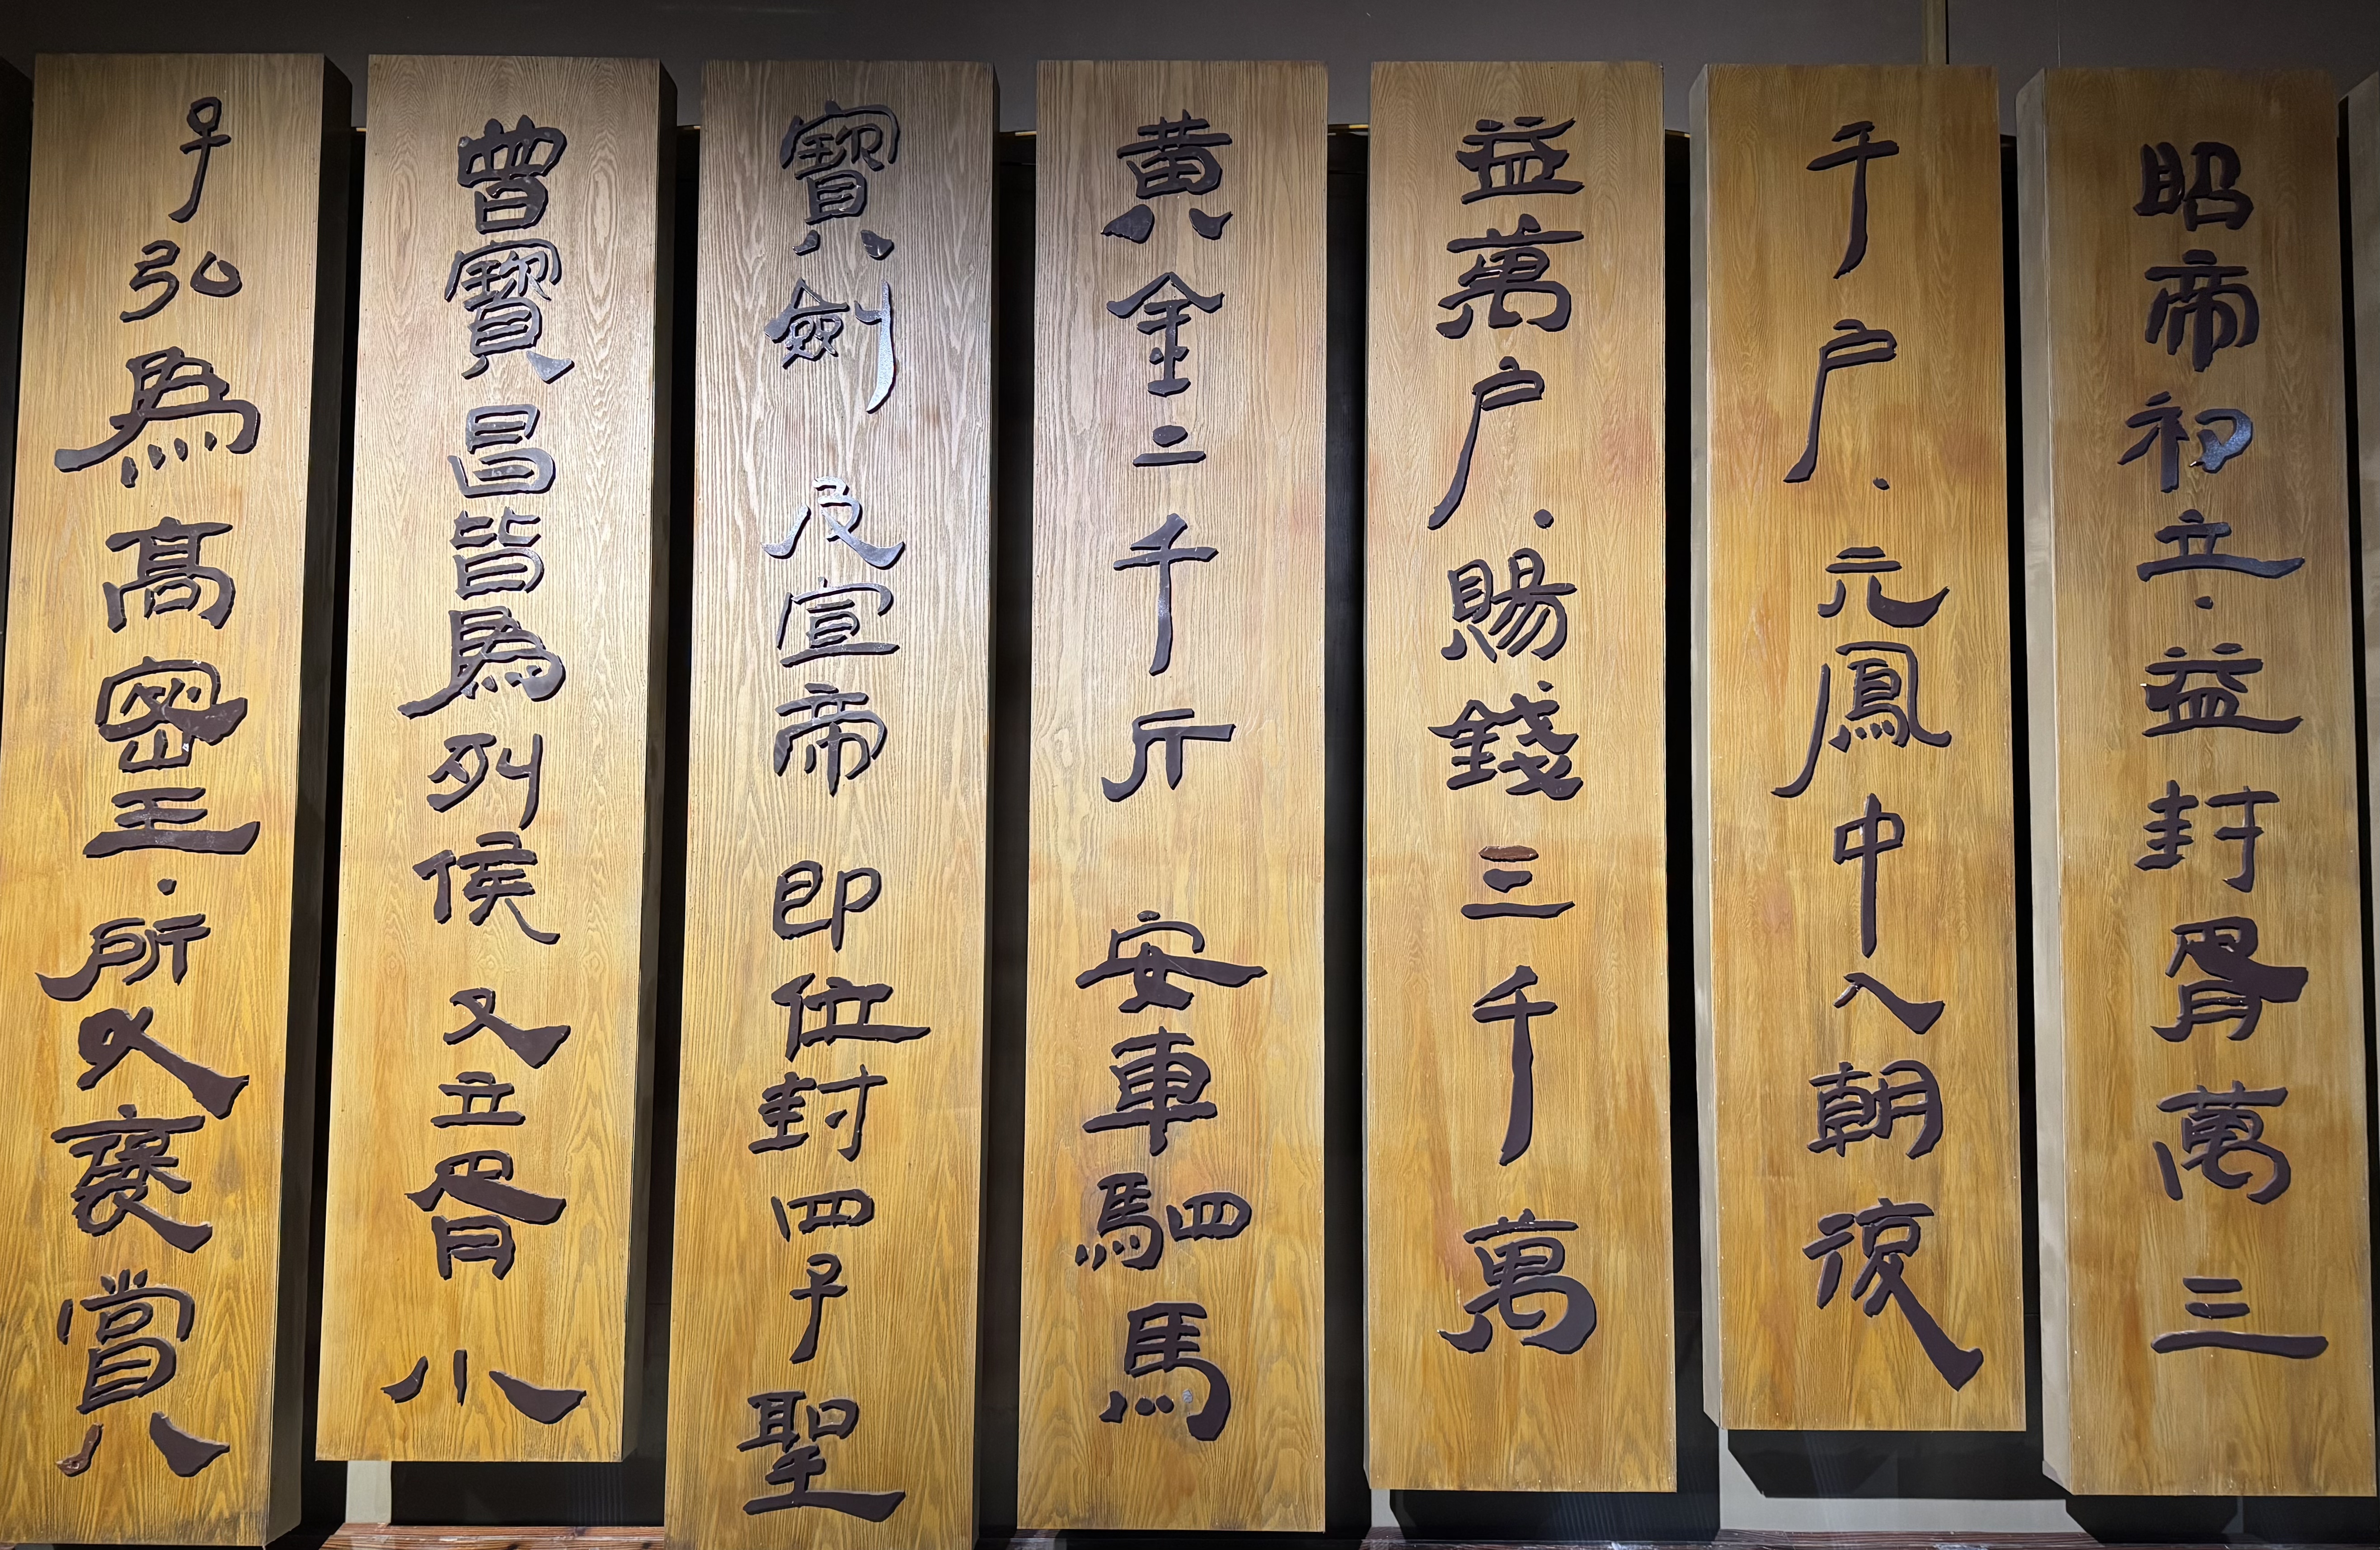 昭帝初立·益封胥萬三
千户·元鳳中入朝復
益萬户·賜錢三千萬
黄金二千斤 安車駟馬
寶劍 及宣帝即位封四子聖
曾寶昌皆爲列侯又立胥小
子弘爲高密王·所以褒賞